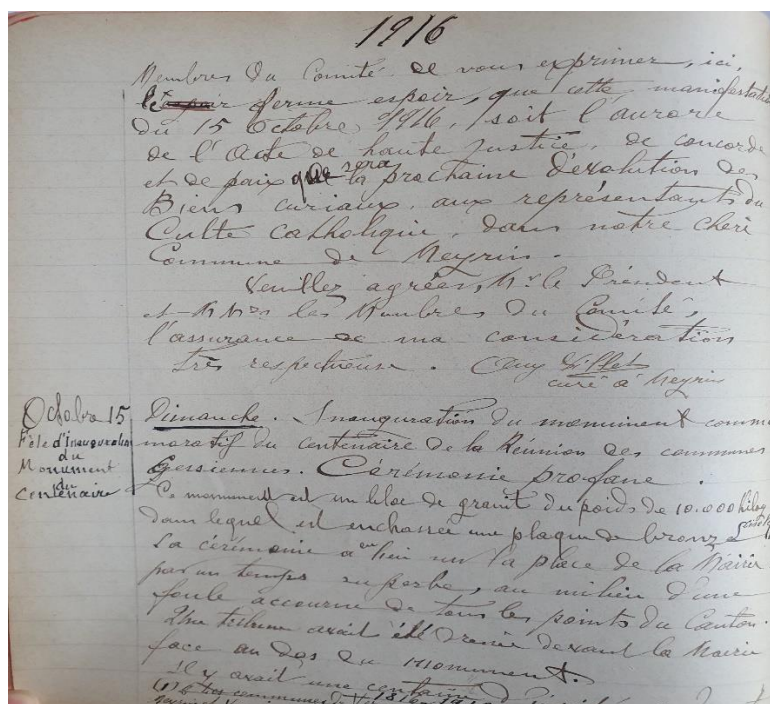 1916
Membres du Comité de vous exprimer, ici,
le ferme espoir, que cette manifestati
du 15 Octobre 1916, soit l'aurore
de l'Acte de haute justice, de concorde
et de paix que sera
la prochaine dévolution des
Biens curiaux, aux représentants du
Culte catholique, dans notre chère
Commune de Meyrin.
Veuillez agréer, Mr le Président
et les Membres du Comité,
l'assurance de ma considération
très respectueuse.
curé à Meyrin
Octobre 15
Fête d'Inauguration
du
Monument
du
Centenaire
Dimanche. Inauguration du monument comme
moratif du centenaire de la Réunion des communes
Gessiennes. Cérémonie profane.
Ce monument est un bloc de granit du poids de 10.000 kilog
dans lequel est enchassée une plaque de bronze
La cérémonie a eu lieu sur la place de la Mairie
par un temps superbe, au milieu d'une
foule accourue de tous les points du Canton.
Une tribune avait été dressée devant la Mairie
face au dos du Monument.
Il y avait une centaine